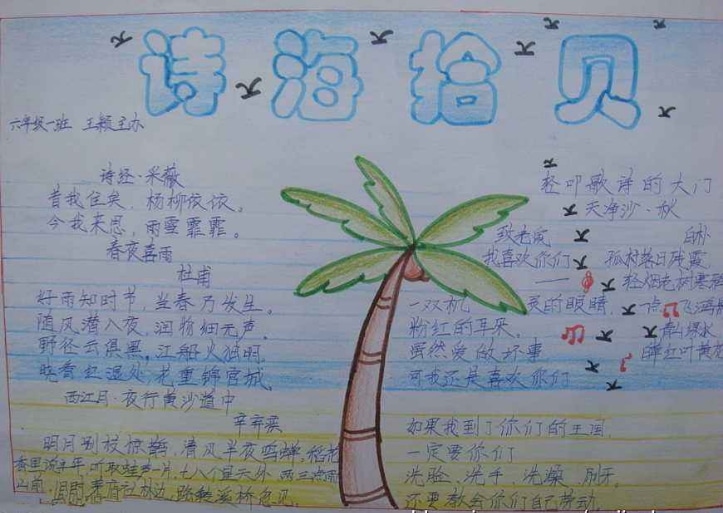 诗海拾贝
六年级一班 王颖主办
诗经·采薇
昔我往矣,杨柳依依。
今我来思,雨雪霏霏。
春夜喜雨
杜甫
好雨知时节,当春乃发生。
随风潜入夜,润物细无声。
野径云俱黑,江船火独明。
晓看红湿处,花重锦官城。
西江月·夜行黄沙道中
辛弃疾
明月别枝惊鹊,清风半夜鸣蝉,稻花
香里说丰年,听取蛙声一片,七八个星天外,两三点雨
山前,旧时茅店社林边,路转溪桥忽见。
轻叩歌诗的大门
天净沙·秋
致老鼠
白朴
我喜欢你们
孤村落日残霞
轻烟老树寒鸦
一双机 灵的眼睛,
一点飞鸿
粉红的耳朵。
青山绿水
虽然爱做坏事
白草红叶黄花
可我还是喜欢你们
如果我到了你们的王国,
一定要你们
洗脸、洗手、洗澡、刷牙。
还要教会你们自己劳动。